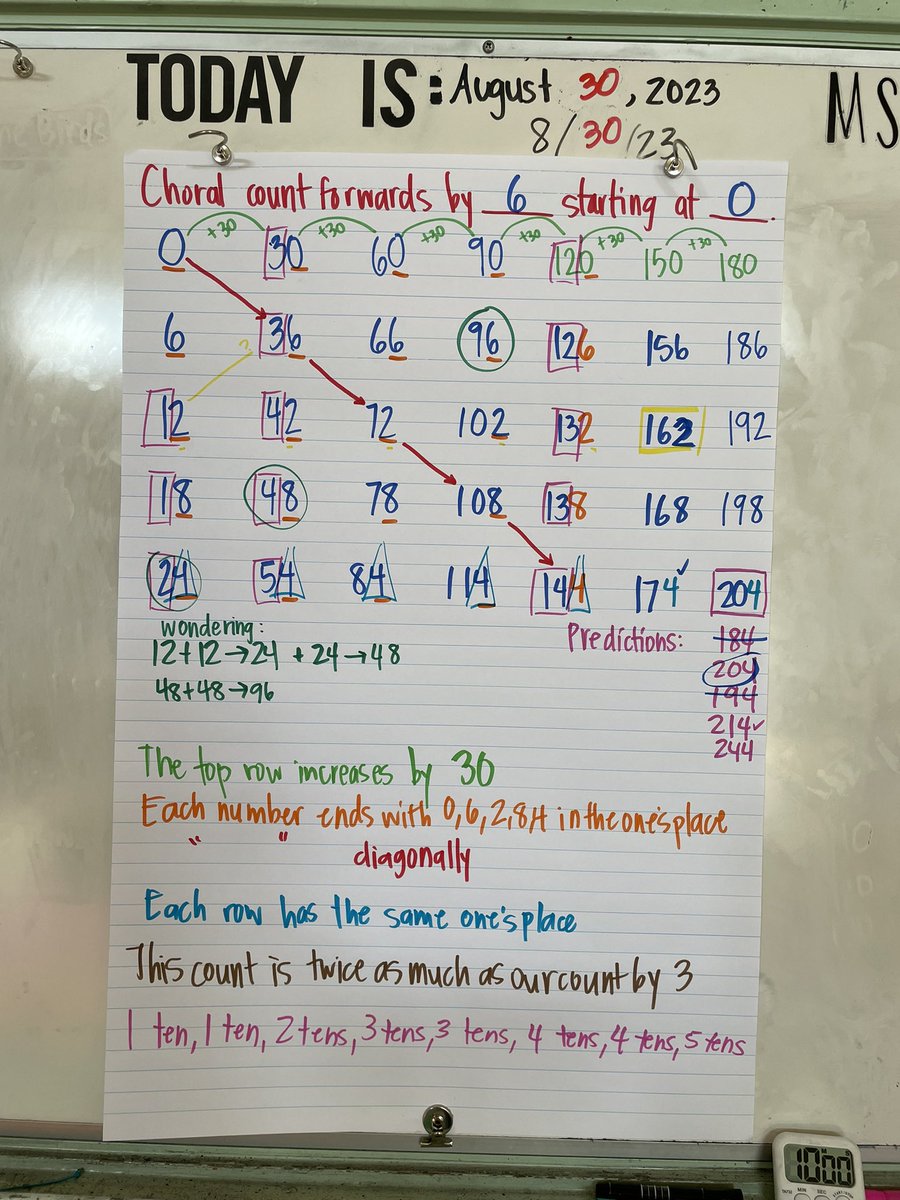 TODAY IS: August 30, 2023
MS
8/30/23
Choral count forwards by 6 starting at 0.
+30 +30 +30 +30 +30 +30
0 30 60 90 120 150 180
6 36 66 96 126 156 186
?
12 42 72 102 132 162 192
18 48 78 108 138 168 198
24 54 84 114 144 174 204
wondering:
12+12→24 +24→48
48+48→96
Predictions: 184
204
194
214✓
244
The top row increases by 30
Each number ends with 0,6,2,8,4 in the one's place
" " diagonally
Each row has the same one's place
This count is twice as much as our count by 3
1 ten, 1 ten, 2 tens, 3 tens, 3 tens, 4 tens, 4 tens, 5 tens
10:00